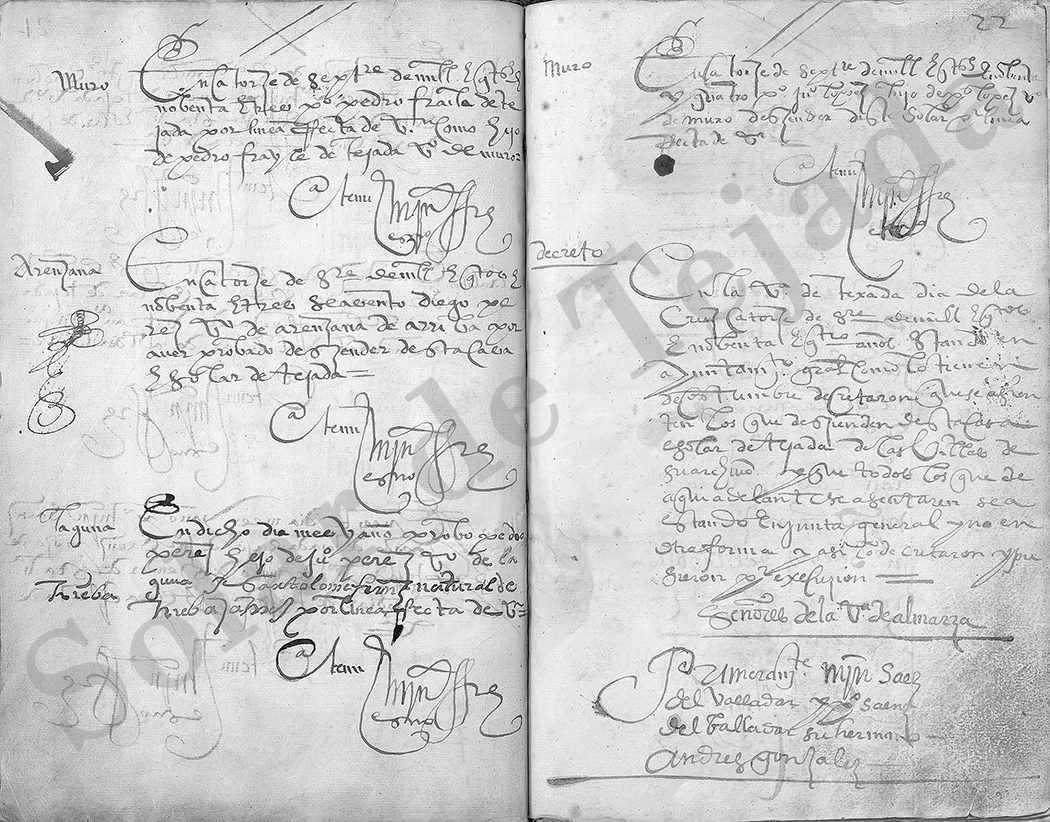 Muro
En catorze de Septre de mill y quatros y
nobenta y tres po pedro fraile de te
jada por linea Reta de V. como hijo
de pedro frayle de tejada vo de muro
Ante mi
Mjn
esno
Arenzana
En catorze de Sre de mill y quatros y
nobenta y tres se asento diego pe
rez vo de arenzana de arriba por
aver probado deszender desta casa
y solar de tejada
Ante mi
Mjn
esno
laguna
En dicho dia mes y año probo pedro
perez hijo de ju perez vo de la
guna y bartolome natural de
por linea Recta de Vn
Ante mi
Mjn
esno
22
Muro
En catorze de Septre de mill y nobenta
y quatro po ju lopez hijo de po lopez vo
de muro deszender deste Solar por linea
Recta de Vn
Ante mi
Mjn
decreto
En la Va de texada dia de la
Cruz catorze de Sre de mill y
y nobenta y años Stando en
Ayuntamto gral como lo tienen
de costumbre decretaron que se asien
ten los que deszienden desta casa
e solar de tejada de las Villas de
y que todos los que de
aqui adelante se asentaren sea
estando en junta general y no en
otra forma y asi lo decretaron y pu
sieron por exexuzion
Señores de la Va de almarza
Primer dijte Mjn Saez
del Valladar y po saenz
del balladar su hermano
Andres gonzalez
Solar de Tejada